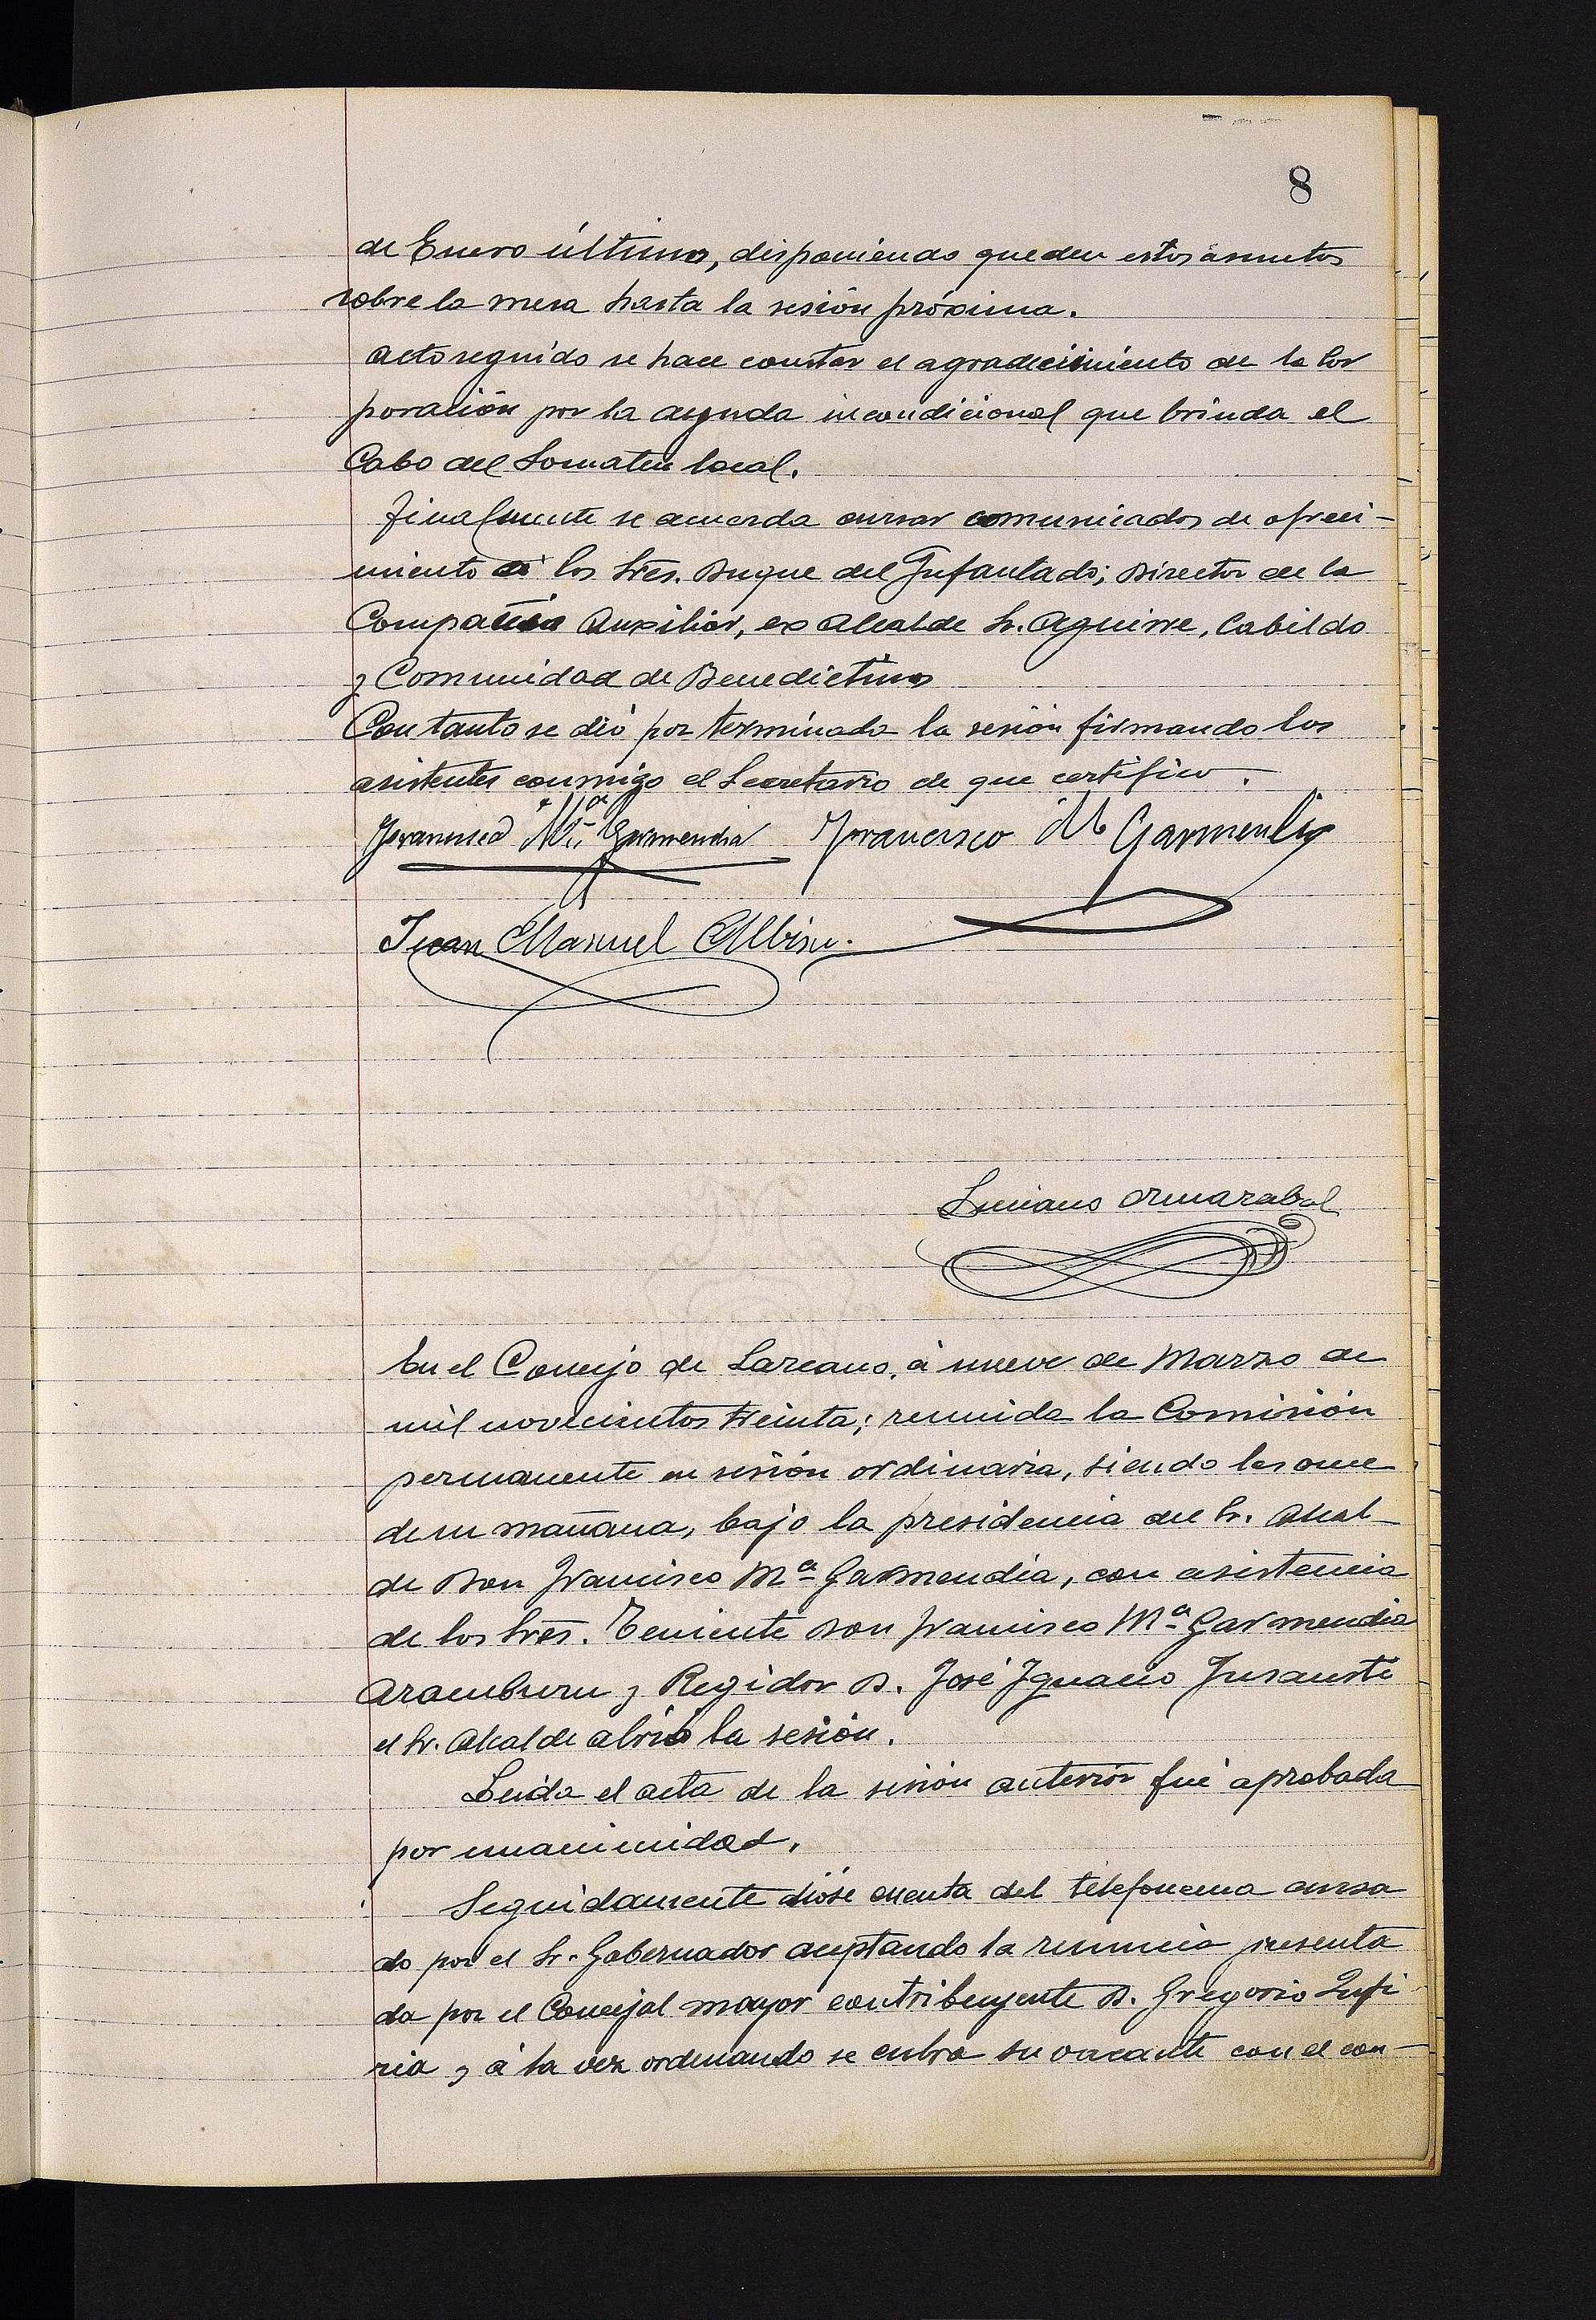 8
de Enero último, disponiendo queden estos asuntos
sobre la mesa hasta la sesión próxima.
Acto seguido se hace constar el agradecimiento de la Cor
poración por la ayuda incondicional que brinda el
Cabo del Somatén local.
Finalmente se acuerda cursar comunicados de ofreci-
miento á los Sres. Duque del Infantado; Director de la
Compañía Auxiliar, ex Alcalde Sr. Aguirre, Cabildo
y Comunidad de Benedictinos
Con tanto se dió por terminada la sesión firmando los
asistentes conmigo el Secretario de que certifico.
Francisco Mª Garmendia Francisco M Garmendia
Juan Manuel Albisu.
Luciano Ormazabal
En el Concejo de Lazcano, á nueve de Marzo de
mil novecientos treinta; reunida la Comisión
permanente en sesión ordinaria, siendo las once
de su mañana, bajo la presidencia del Sr. Alcal-
de Don Francisco Mª Garmendia, con asistencia
de los Sres. Teniente Don Francisco Mª Garmendia
Aramburu y Regidor D. José Ignacio Insausti
el Sr. Alcalde abrió la sesión.
Leida el acta de la sesión anterior fué aprobada
por unanimidad.
Seguidamente dióse cuenta del telefonema cursa
do por el Sr. Gobernador aceptando la renuncia presenta
da por el Concejal mayor contribuyente D. Gregorio
ria y á la vez ordenando se cubra su vacante con el con-